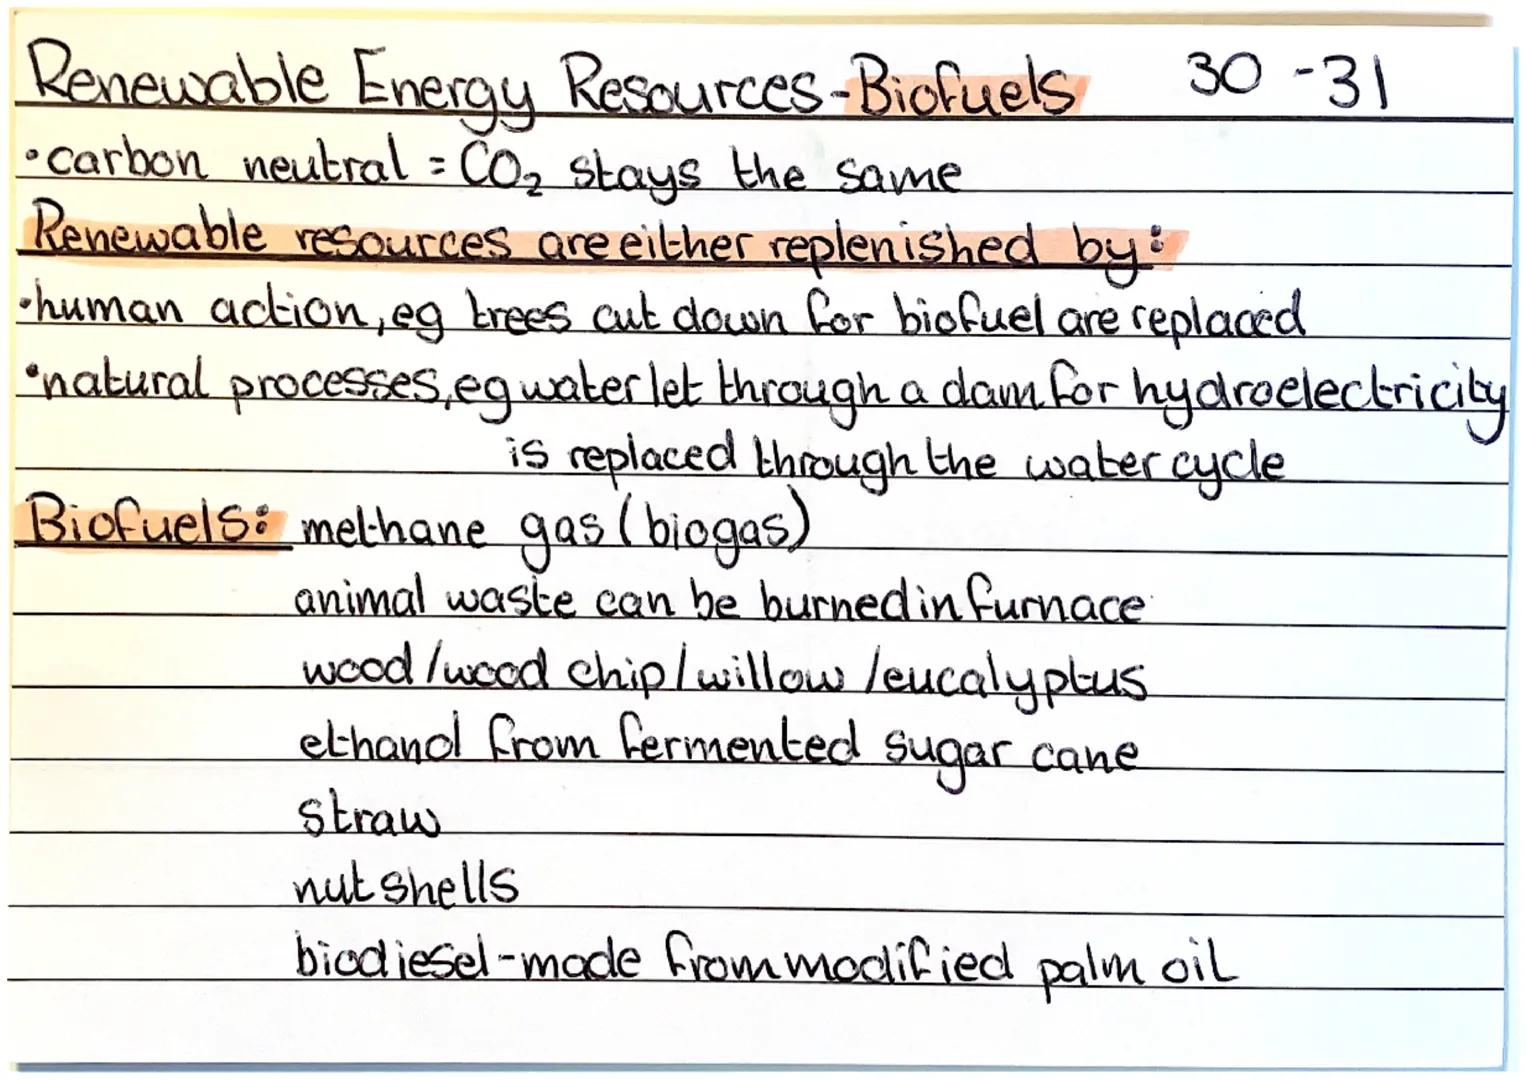 Renewable Energy Resources-Biofuels 30-31
•carbon neutral = CO₂ stays the same
Renewable resources are either replenished by:
•human action, eg trees cut down for biofuel are replaced
•natural processes, eg water let through a dam for hydroelectricity
is replaced through the water cycle
Biofuels: methane gas (biogas)
animal waste can be burned in furnace
wood/wood chip/willow/eucalyptus
ethanol from fermented sugar cane
straw
nutshells
biodiesel-made from modified palm oil